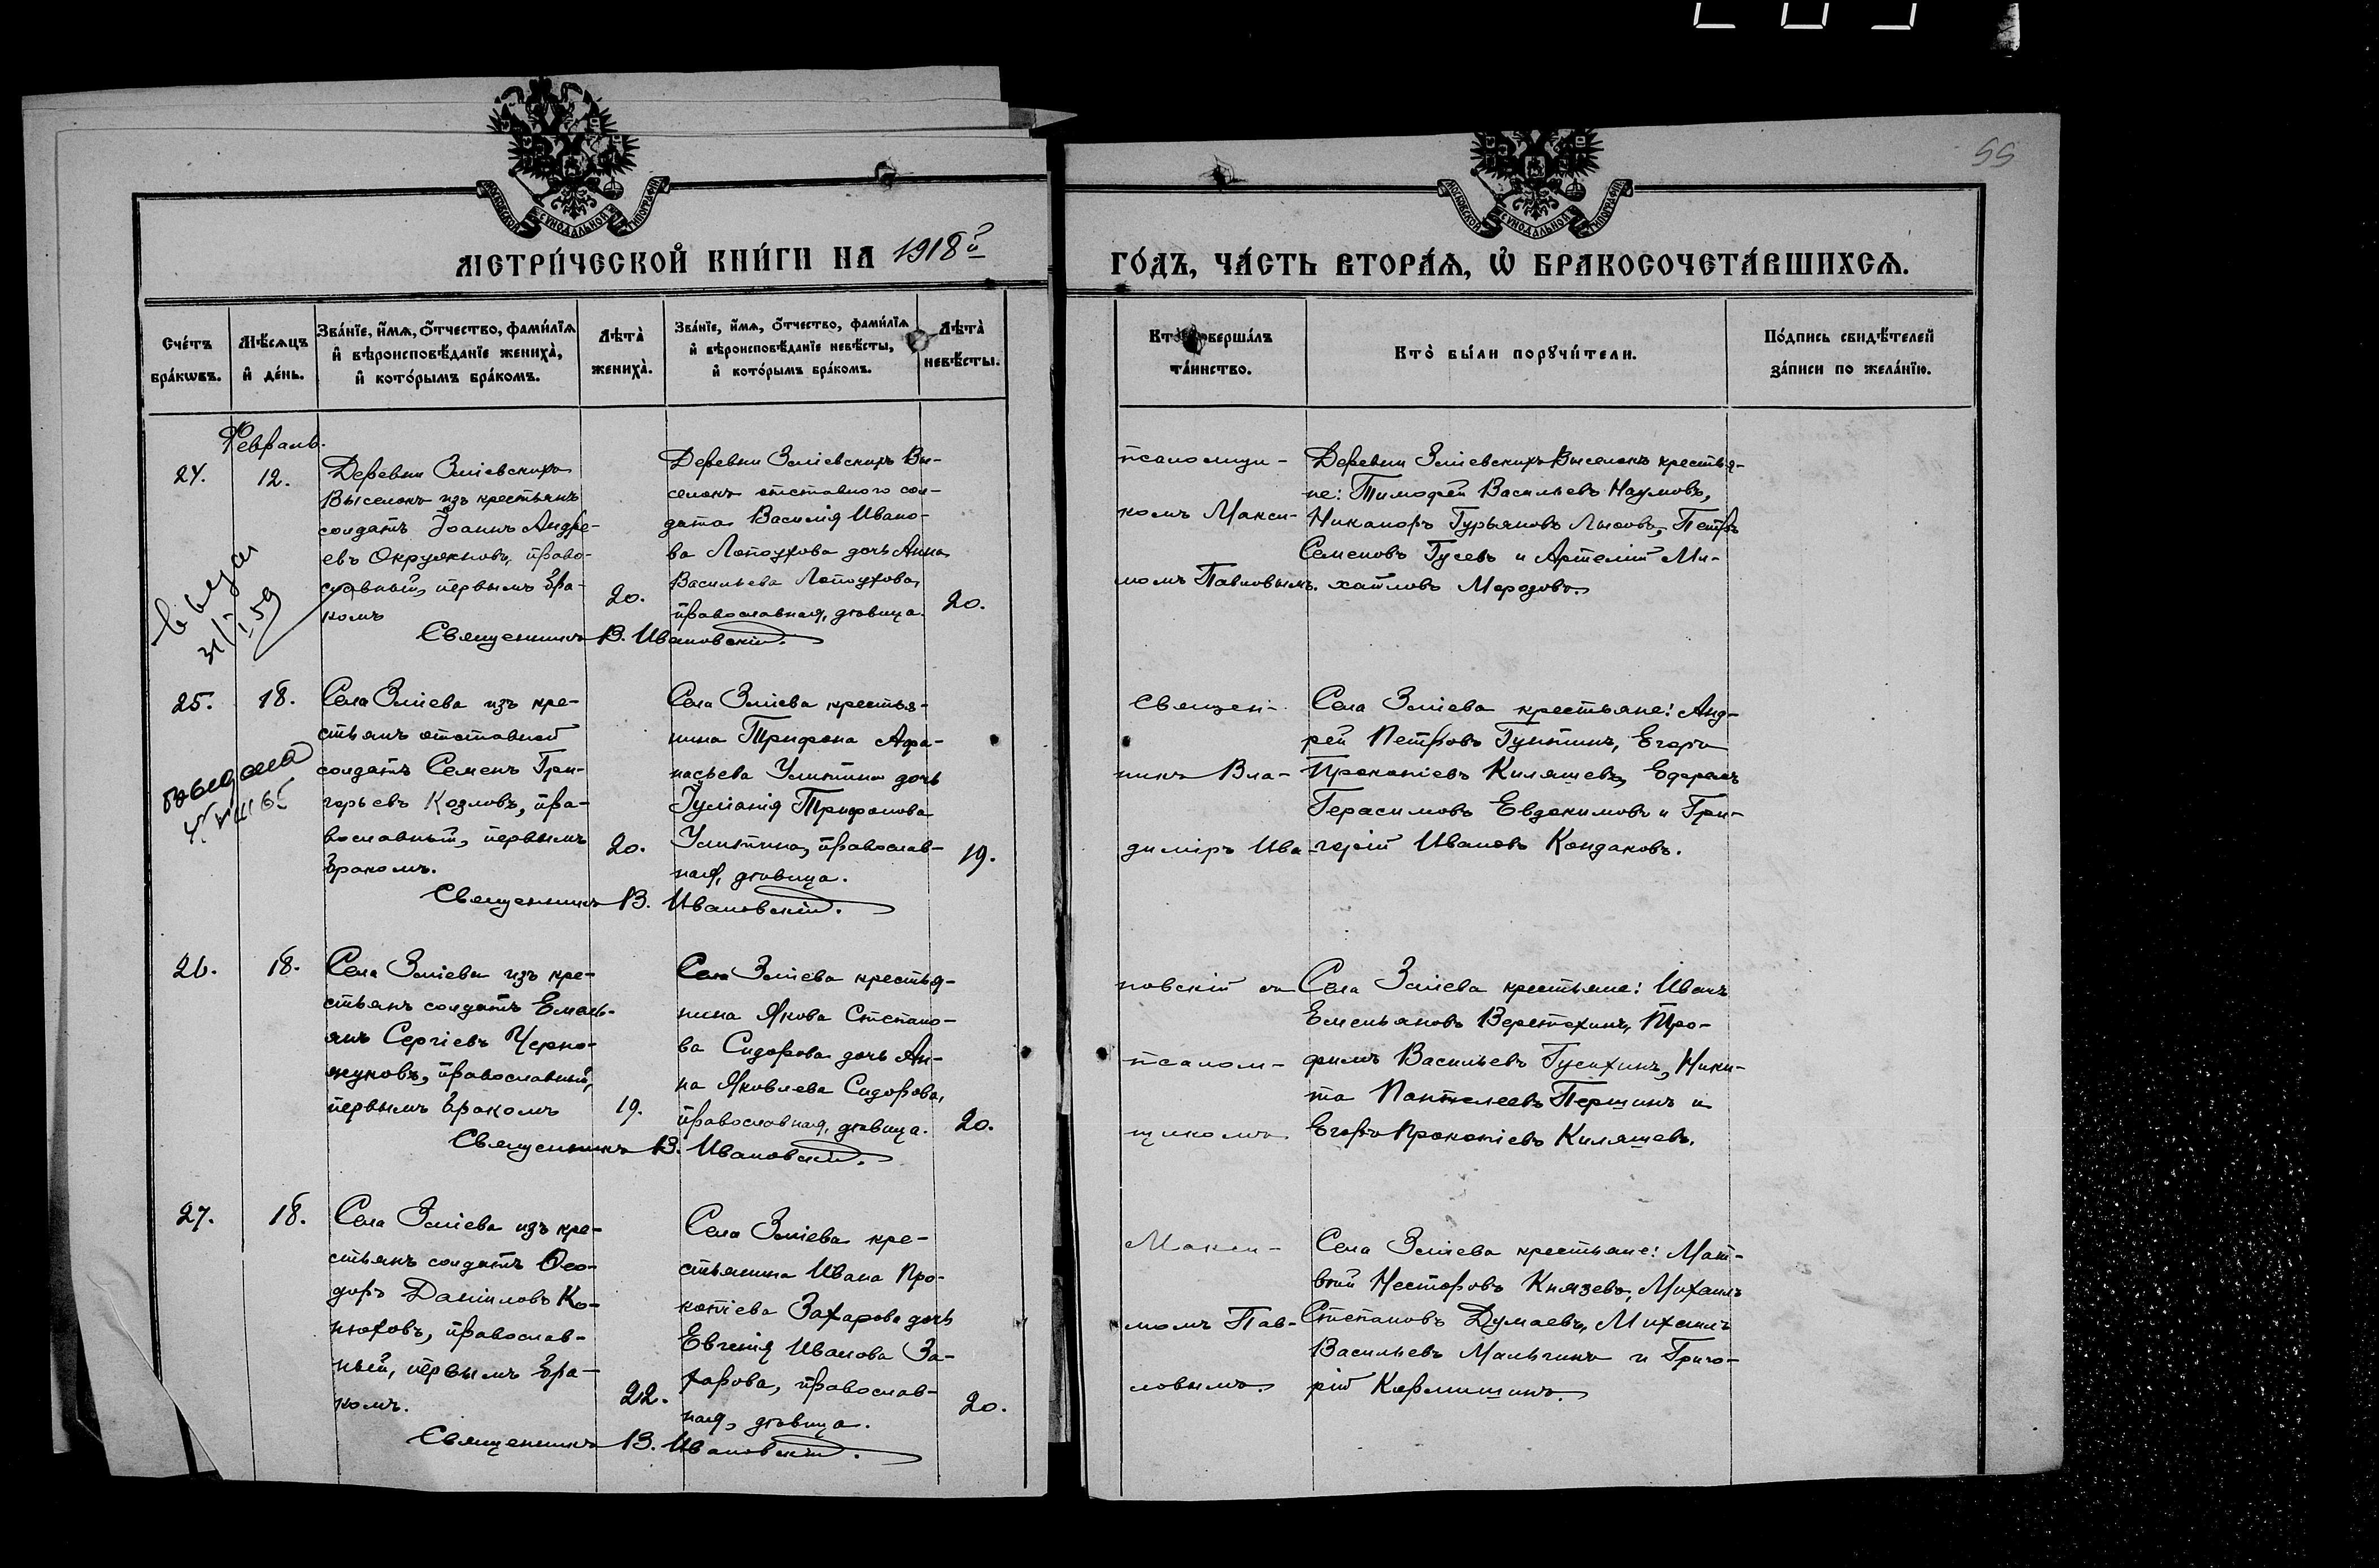 55
МОСКОВСКОЙ СѴНОДАЛЬНОЙ ТИПОГРАФІИ
МОСКОВСКОЙ СѴНОДАЛЬНОЙ ТИПОГРАФІИ
МЕТРИ́ЧЕСКОЙ КНИ́ГИ НА 1918й
ГО́ДЪ, ЧА́СТЬ ВТОРА́Ѧ, Ѽ БРАКОСОЧЕТА́ВШИХСѦ.
Сче́тъ
бра́кѡвъ.
Мѣ́сѧцъ
и҆ де́нь.
Зва́нїе, и҆́мѧ, ѻ҆́тчество, фами́лїѧ
и҆ вѣроисповѣ́данїе жениха̀,
и҆ кото́рымъ бра́комъ.
Лѣ́та̀
жениха̀.
Зва́нїе, и҆́мѧ, ѻ҆́тчество, фами́лїѧ
и҆ вѣроисповѣ́данїе невѣ́сты,
и҆ кото́рымъ бра́комъ.
Лѣ́та̀
невѣ́сты.
Кто̀ совершáлъ
та́инство.
Кто̀ бы́ли порꙋчи́тели.
По́дпись свидѣ́телей
за́писи по жела́нїю.
Февраль.
24.
12.
Деревни Зміевскихъ
Выселокъ изъ крестьянъ
солдатъ Іоаннъ Андре-
евъ Окружновъ, право-
славный, первымъ бра-
комъ
20.
Деревни Зміевскихъ Вы-
селокъ отставного сол-
дата Василія Ивано-
ва Лопоухова дочь Анна
Васильева Лопоухова,
православная, дѣвица.
20.
Священникъ В. Ивановскій.
31/I 59
псаломщи-
комъ Макси-
момъ Павловымъ.
Деревни Зміевскихъ Выселокъ крестья-
не: Тимофей Васильевъ Наумовъ,
Никаноръ Гурьяновъ Лысовъ, Петръ
Семеновъ Гусевъ и Артемій Ми-
хайловъ Мародовъ.
25.
18.
Села Зміева изъ кре-
стьянъ отставной
солдатъ Семенъ Гри-
горьевъ Козловъ, пра-
вославный, первымъ
бракомъ.
20.
Села Зміева крестья-
нина Трифона Афа-
насьева Улитина дочь
Іуліанія Трифонова
Улитина, православ-
ная, дѣвица.
19.
Священникъ В. Ивановскій.
выдана
Священ-
никъ Вла-
димiръ Ива-
Села Зміева крестьяне: Анд-
рей Петровъ Гунтинъ, Егоръ
Прокопіевъ Киляшевъ, Ефремъ
Герасимовъ Евдокимовъ и Гри-
горій Ивановъ Кондаковъ.
26.
18.
Села Зміева изъ кре-
стьянъ солдатъ Емель-
янъ Сергіевъ Черно-
жуковъ, православный,
первымъ бракомъ
19.
Села Зміева крестья-
нина Якова Степано-
ва Сидорова дочь Ан-
на Яковлева Сидорова,
православная, дѣвица.
20.
Священникъ В. Ивановскій.
новскій съ
псалом-
щикомъ
Села Зміева крестьяне: Иванъ
Емельяновъ Веретехинъ, Тро-
фимъ Васильевъ Гусихинъ, Ники-
та Пантелеевъ Першинъ и
Егоръ Прокопіевъ Киляшевъ.
27.
18.
Села Зміева изъ кре-
стьянъ солдатъ Ѳео-
доръ Даніиловъ Ко-
нюховъ, православ-
ный, первымъ бра-
комъ.
22.
Села Зміева кре-
стьянина Ивана Про-
копіева Захарова дочь
Евгенія Иванова За-
харова, православ-
ная, дѣвица.
20.
Священникъ В. Ивановскій.
Макси-
момъ Пав-
ловымъ.
Села Зміева крестьяне: Мат-
вѣй Несторовъ Князевъ, Михаилъ
Степановъ Думаевъ, Михаилъ
Васильевъ Мальгинъ и Григо-
рій Кармишинъ.